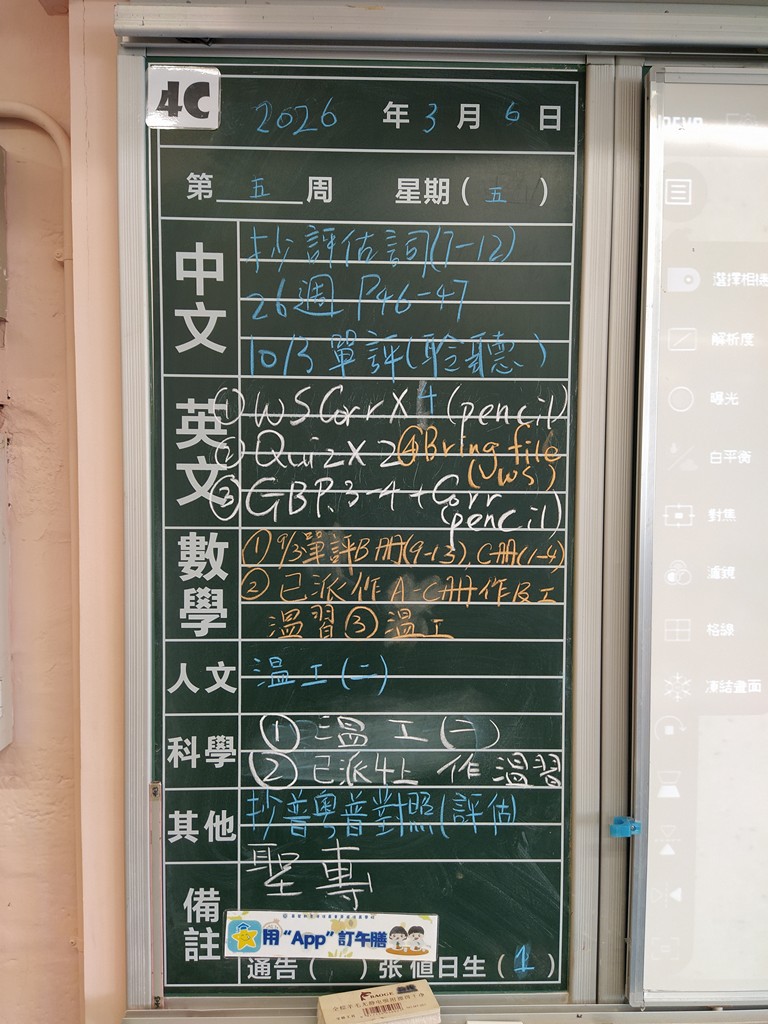 4C
2026 年 3 月 6 日
第 五 周 星期( 五 )
中文
抄評估詞(7-12)
26週 P46-47
10/3 單評(聆聽)
英文
① WS Corr X 4 (pencil)
② Quiz X 2 ④ Bring file (WS)
③ GB P.3-4 + Corr (pencil)
數學
① 9/3單評B冊(9-13), C冊(1-4)
② 已派作A-C冊作及工
溫習 ③ 溫工
人文
溫工(二)
科學
① 溫工(二)
② 已派4上 作 溫習
其他
抄普粵普對照(評估)
備註
聖專
用“App”訂午膳
通告( )张 值日生( 1 )
選擇相機
解析度
曝光
白平衡
對焦
濾鏡
格線
凍結畫面